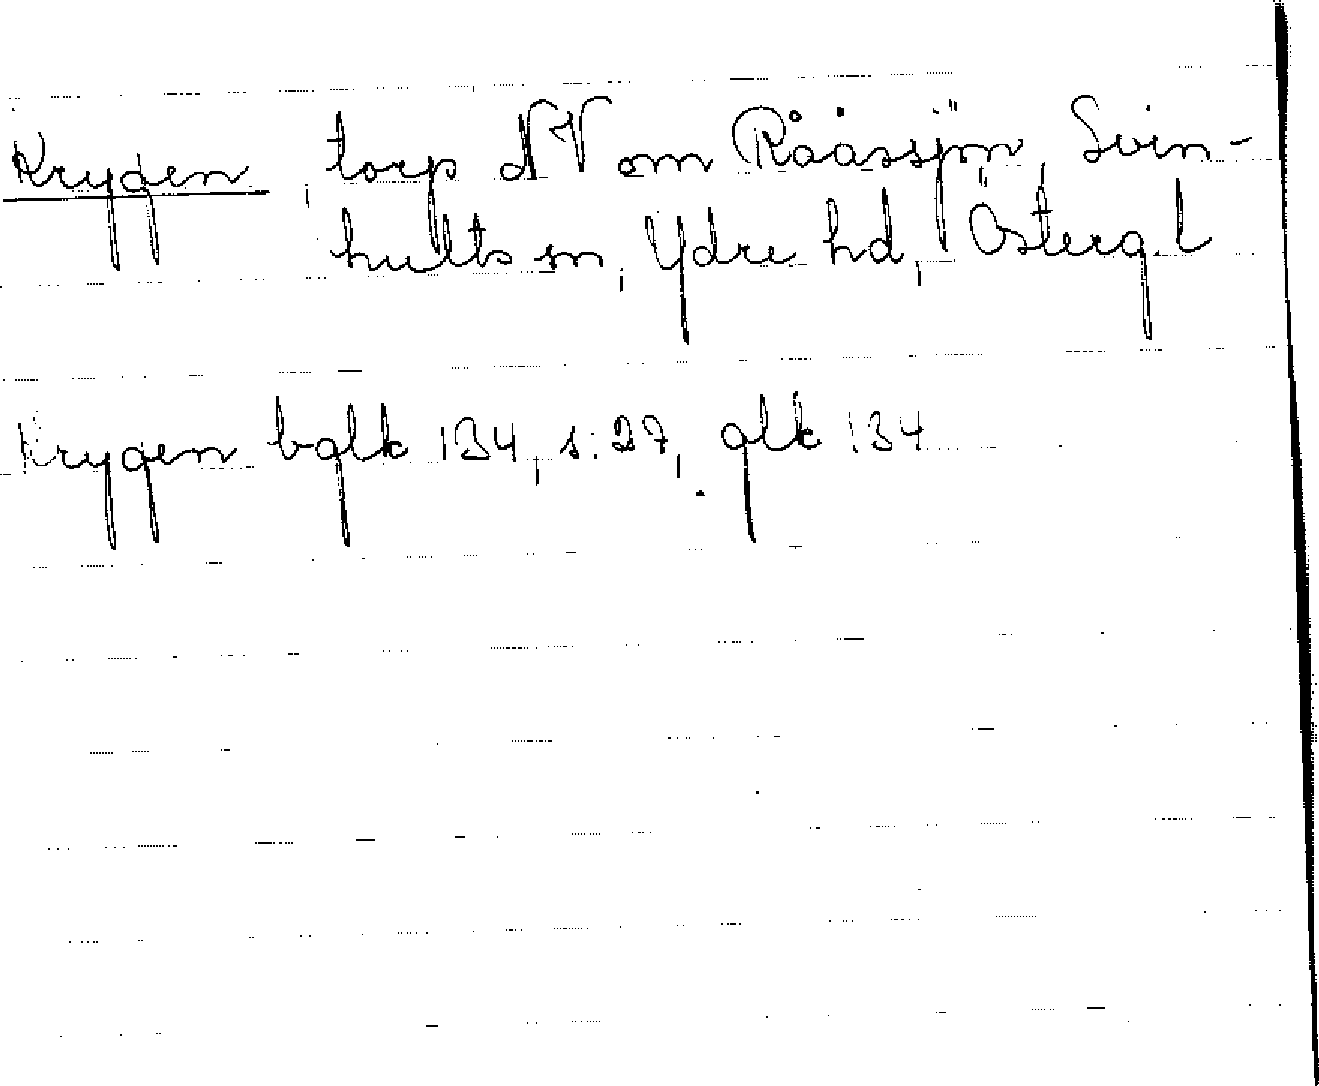 Krygen, torp NV om Rååssjön, Svin-
hults sn, Ydre hd, Östergl
Krygen bglk 134, s. 27, glk 134